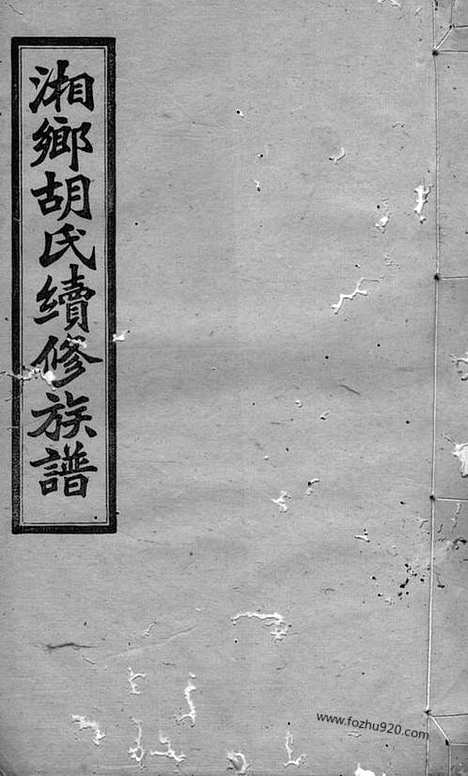 湘鄉胡氏續修族譜
www.fozhu920.com